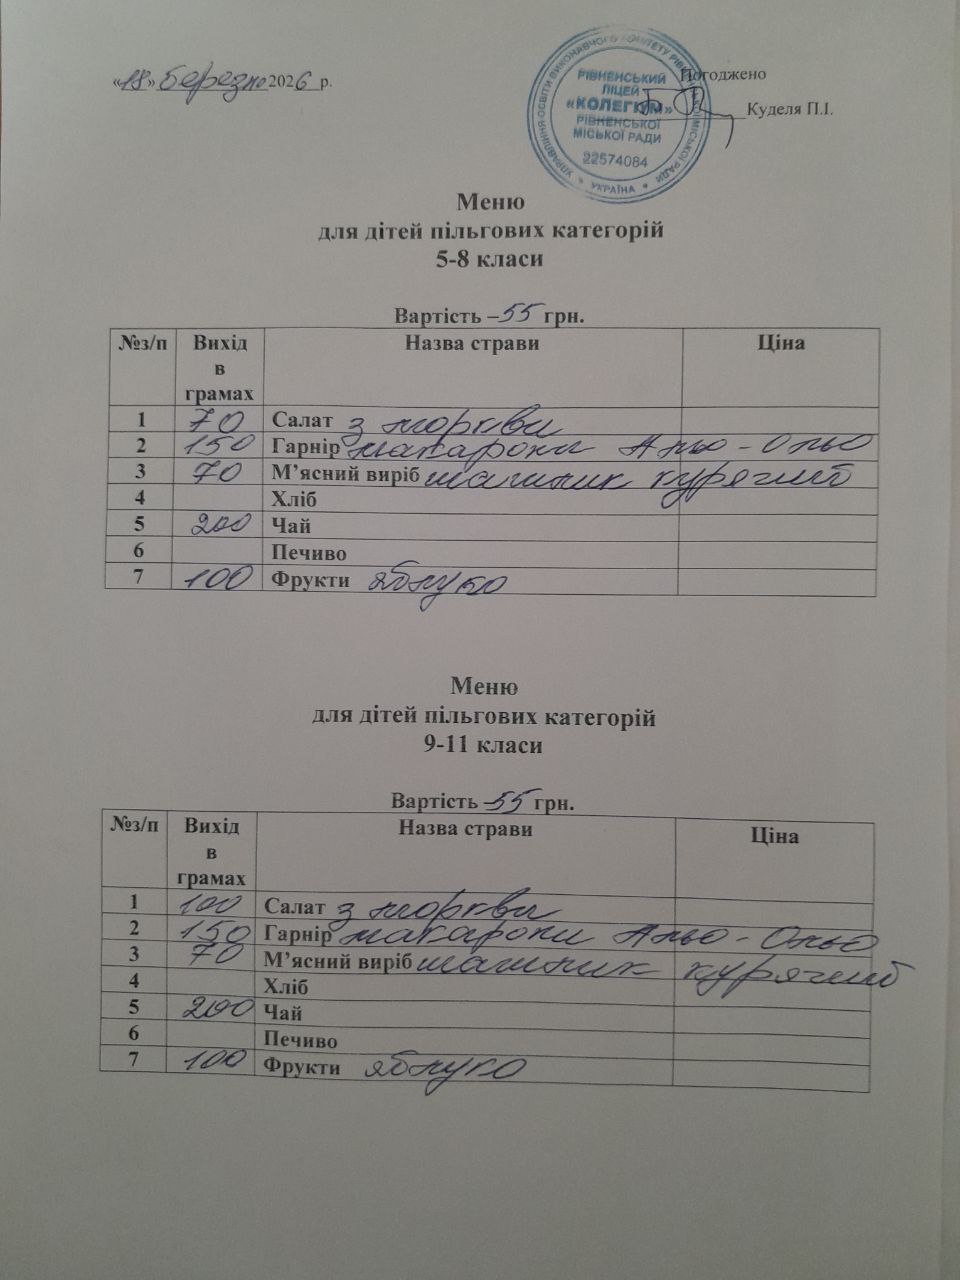 «18» березня 2026 р.
Погоджено
Куделя П.І.
УПРАВЛІННЯ ОСВІТИ ВИКОНАВЧОГО КОМІТЕТУ РІВНЕНСЬКОЇ МІСЬКОЇ РАДИ
РІВНЕНСЬКИЙ
ЛІЦЕЙ
«КОЛЕГІУМ»
РІВНЕНСЬКОЇ
МІСЬКОЇ РАДИ
22574084
* УКРАЇНА *
Меню
для дітей пільгових категорій
5-8 класи
Вартість – 55 грн.
№з/п Вихід в грамах Назва страви Ціна
1 70 Салат з моркви
2 150 Гарнір макарони Альо-Ольо
3 70 М’ясний виріб шашлик курячий
4 Хліб
5 200 Чай
6 Печиво
7 100 Фрукти яблуко
Меню
для дітей пільгових категорій
9-11 класи
Вартість – 55 грн.
№з/п Вихід в грамах Назва страви Ціна
1 100 Салат з моркви
2 150 Гарнір макарони Альо-Ольо
3 70 М’ясний виріб шашлик курячий
4 Хліб
5 200 Чай
6 Печиво
7 100 Фрукти яблуко